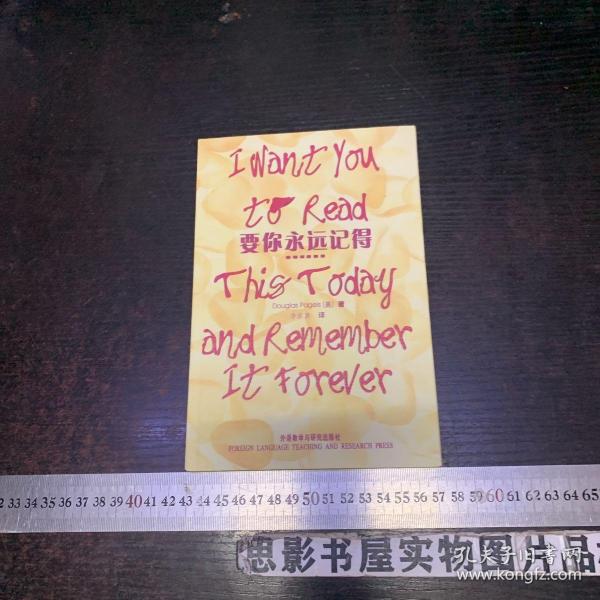 I Want You
to Read
要你永远记得
This Today
Douglas Pagels [美] 著
译
and Remember
It Forever
外语教学与研究出版社
FOREIGN LANGUAGE TEACHING AND RESEARCH PRESS
2 33 34 35 36 37 38 39 40 41 42 43 44 45 46 47 48 49 50 51 52 53 54 55 56 57 58 59 60 61 62 63 64 65
思影书屋实物图片品
孔夫子旧书网
www.kongfz.com